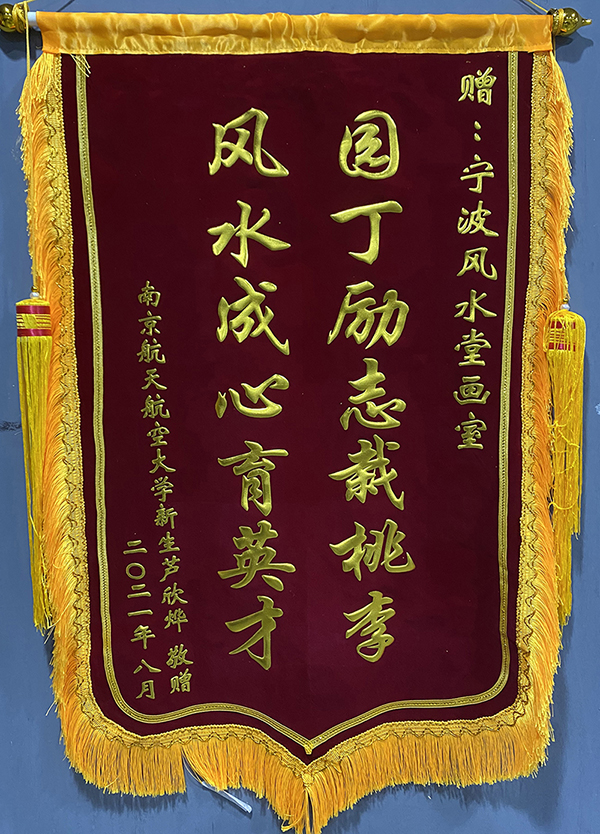 赠：宁波风水堂画室
园丁励志栽桃李
风水成心育英才
南京航天航空大学新生芦欣烨 敬赠
二〇二一年八月